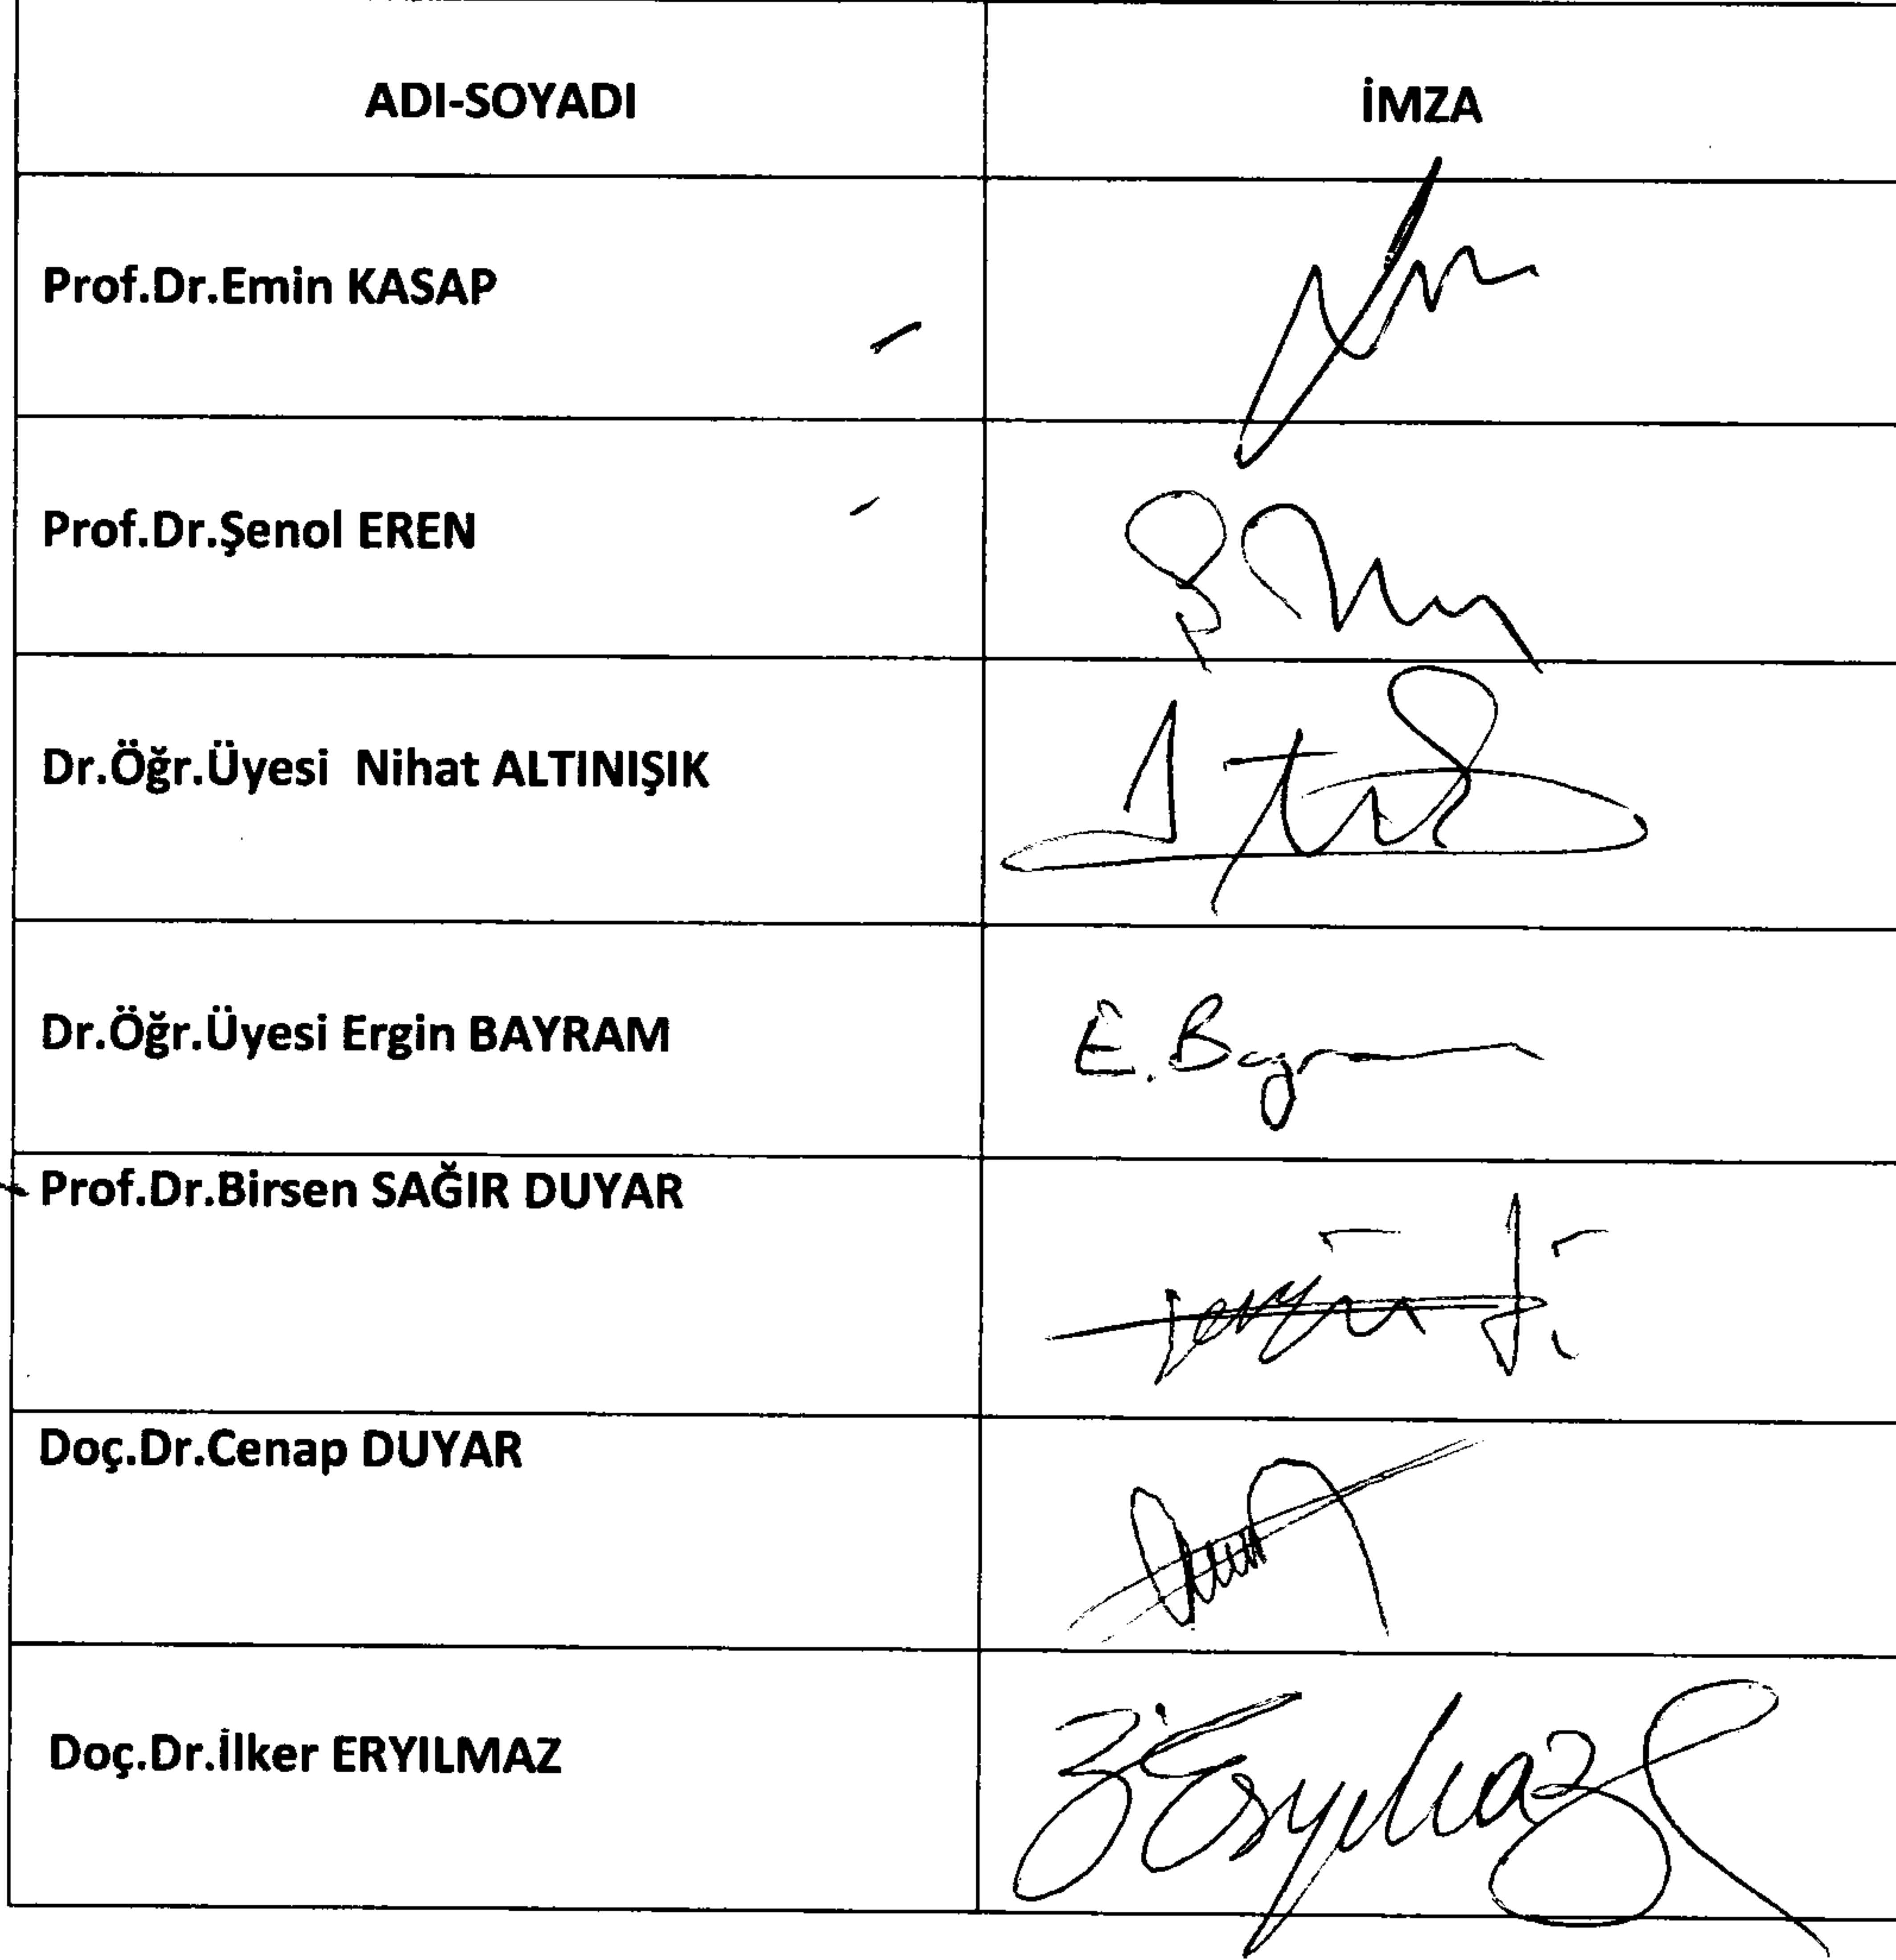 ADI-SOYADI İMZA
Prof.Dr.Emin KASAP
Prof.Dr.Şenol EREN
Dr.Öğr.Üyesi Nihat ALTINIŞIK
Dr.Öğr.Üyesi Ergin BAYRAM E. Bayram
Prof.Dr.Birsen SAĞIR DUYAR
Doç.Dr.Cenap DUYAR
Doç.Dr.İlker ERYILMAZ İ Eryılmaz